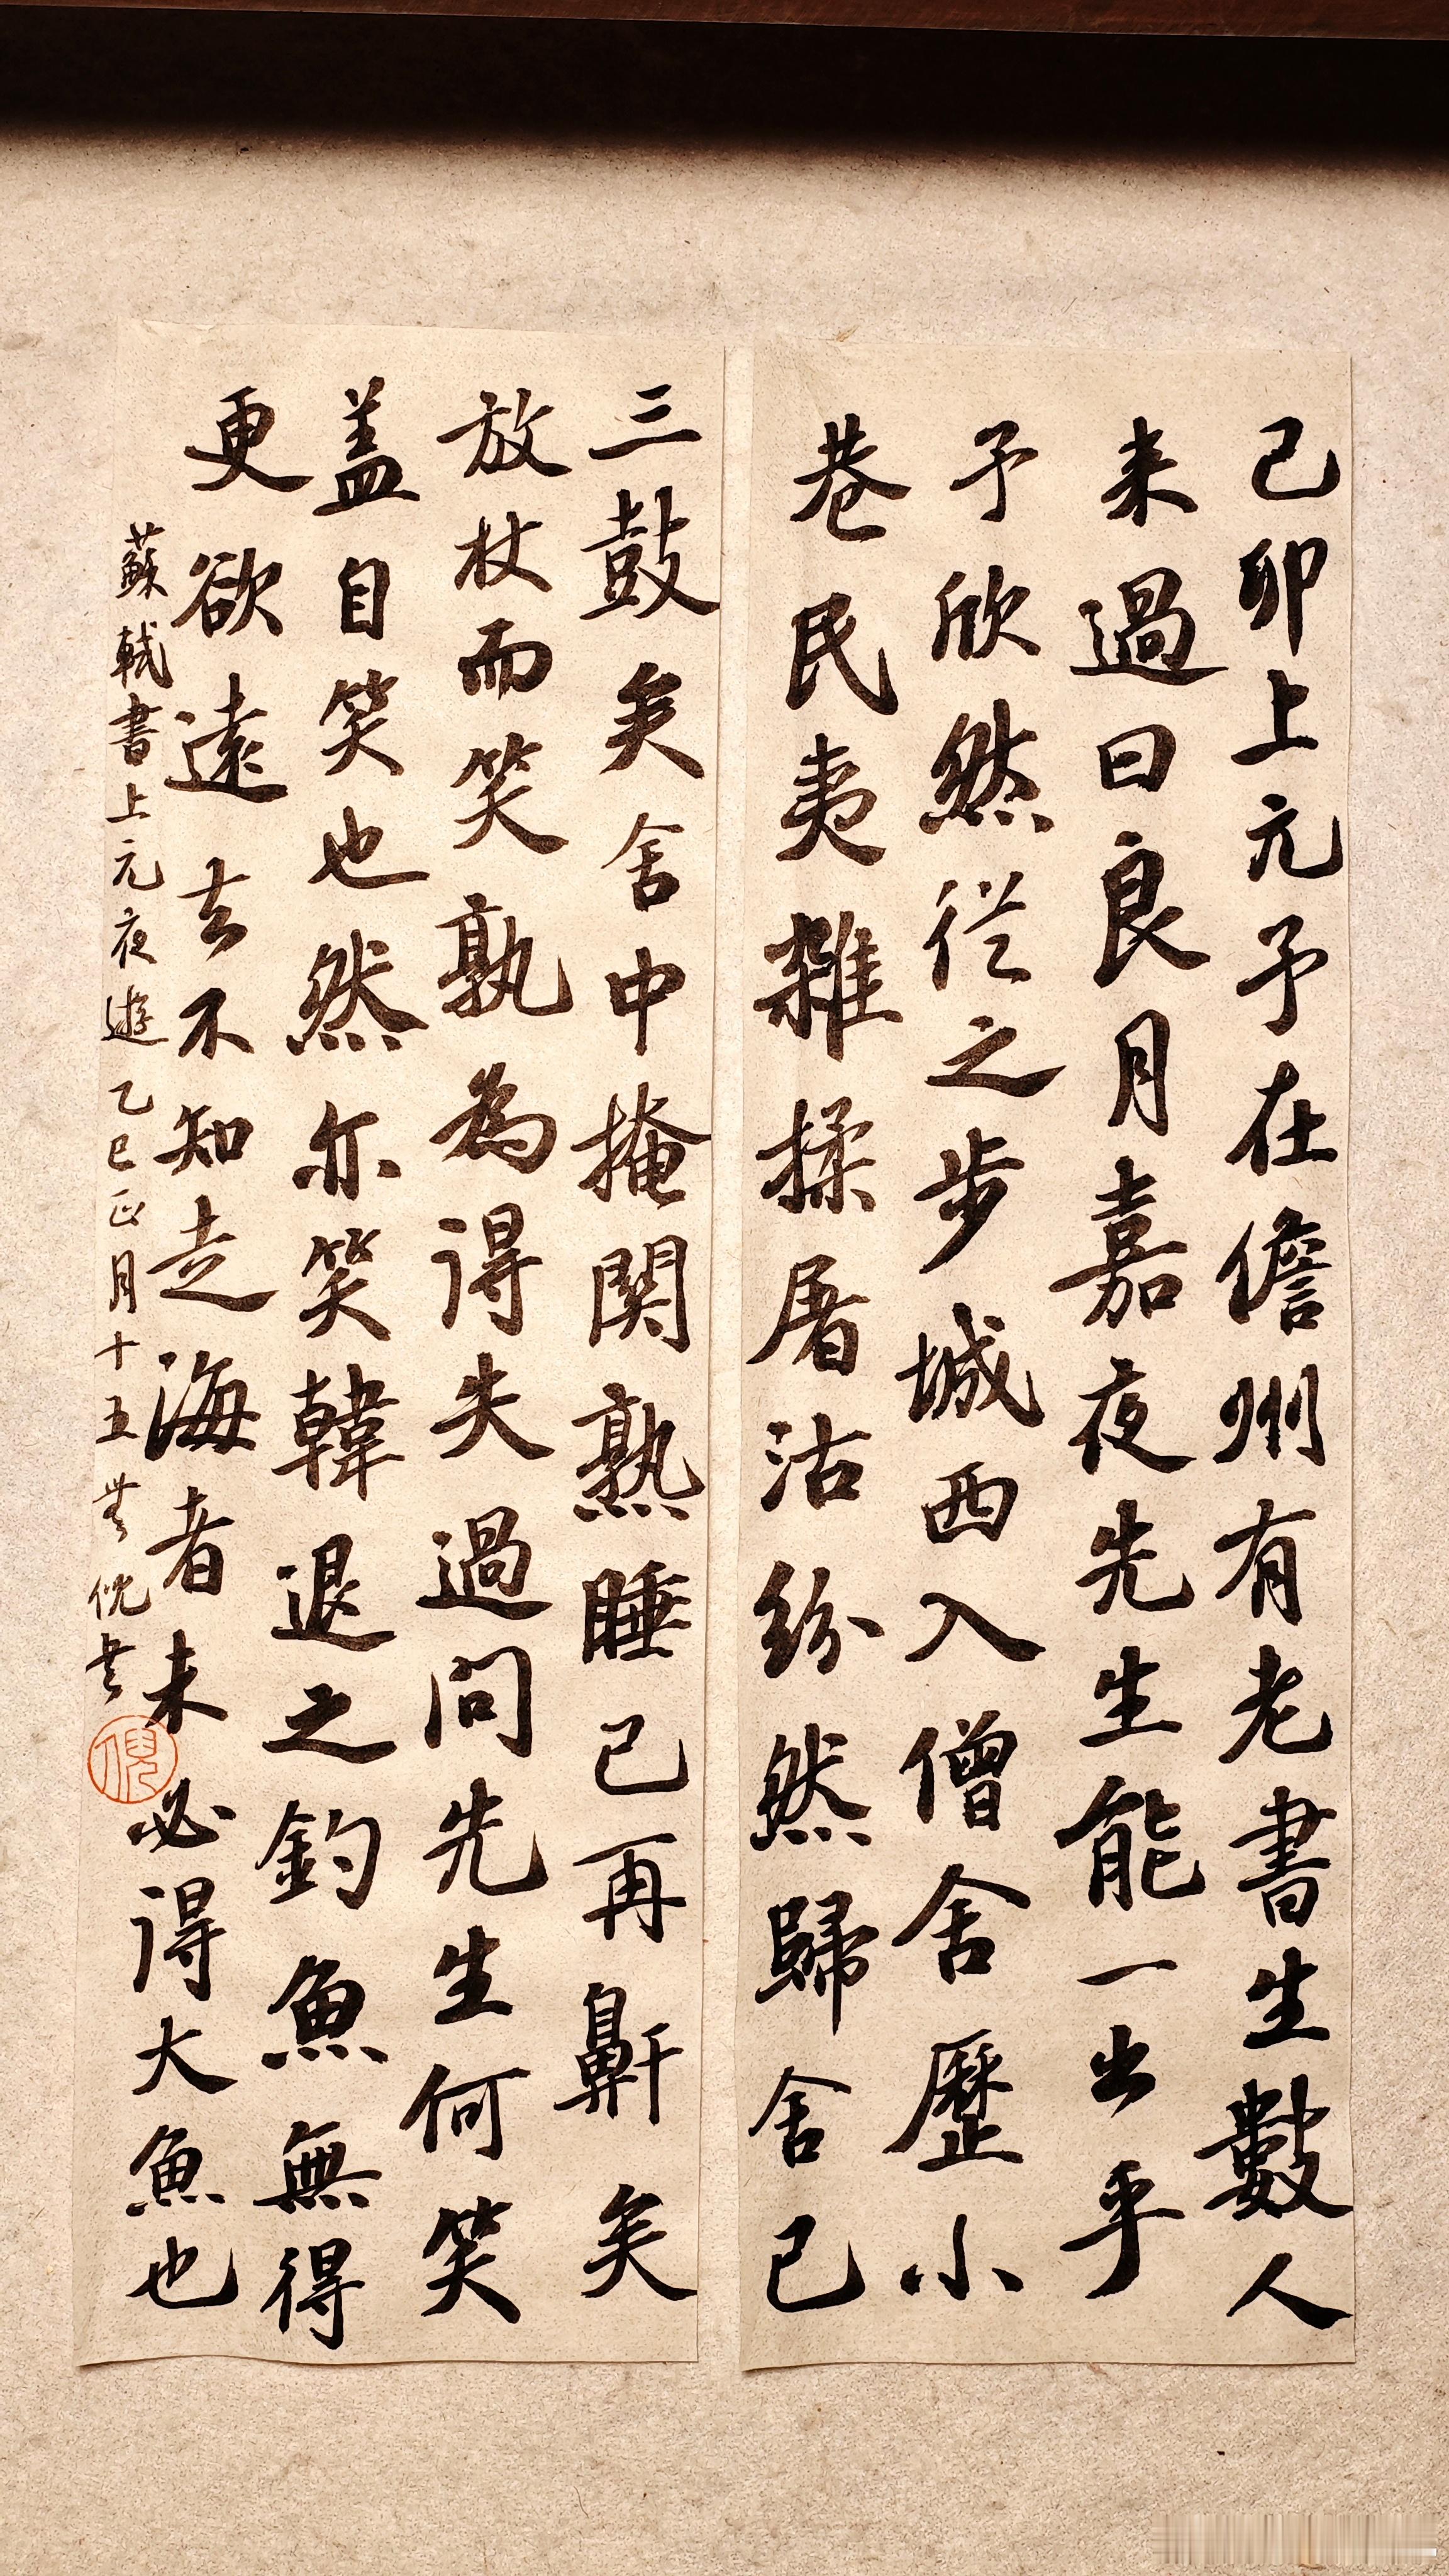 己卯上元予在儋州有老書生數人
来過曰良月嘉夜先生能一出乎
予欣然從之步城西入僧舍歷小
巷民夷雜揉屠沽紛然歸舍已
三鼓矣舍中掩關熟睡已再鼾矣
放杖而笑孰為得失過問先生何笑
盖自笑也然亦笑韓退之釣魚無得
更欲遠去不知走海者未必得大魚也
蘇軾書上元夜遊 乙巳正月十五 倪
倪